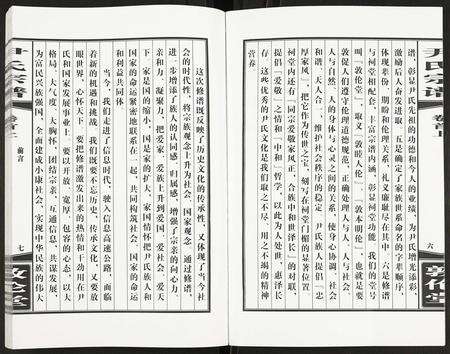 尹氏宗谱
卷首上
六
敦伦堂
谱，彰显尹氏先祖的功德和今人的业绩，为尹氏增光添彩，
激励后人奋发进取。五是确定了家族世系命名的字辈顺序，
体现辈份，期盼和伦理关系，礼义廉显尽在其中。六是修谱
与祠堂相配套，丰富宗谱内涵，彰显祠堂功能。我们的堂号
叫“敦伦堂”，取义“敦睦人伦”、“敦本明伦”，也就是要
敦促人们遵守伦理道德规范，正确处理人与人，人与社会，
人与自然，人的身体与心灵之间的关系，使身心协调，社会
和谐，天人合一，维护社会秩序的稳定。尹氏族人提倡“忠
厚家风”，把它作为传世之宝，刻写在祠堂门楣的显著位置。
祠堂内还有“同宗爱戴家风正，合族中和世泽长”的对联，
提倡“爱敬”之情和“中和”哲学，以此为人处世，惠泽长
存，这些优秀的尹氏文化是我们取之不尽，用之不竭的精神
营养。
这次修谱既反映了历史文化的传承性，又体现了当今社
会的时代性，将宗族观念上升为社会、国家观念。通过修谱，
进一步增添了族人的认同感、归属感，增强了宗亲的向心力、
亲和力、凝聚力，把爱家、爱族上升到爱国、爱社会、爱天
下。家是国的缩小，国是家的扩大，家国情怀把尹氏族人和
国家的命运紧密地联系在一起，共同构筑社会、国家的命运
和利益共同体。
当今，我们走进了信息时代，驶入信息高速公路，面临
着新的机遇和挑战。我们既要不忘历史，传承文化，又要放
眼世界，心怀天下。要把修谱激发出来的热情和干劲用在尹
氏和国家发展事业上。要以开放、宽厚、包容的心态，以大
格局、大气度、大胸怀，团结宗亲，通信息，共谋发展，
为富民兴族强国，全面建成小康社会，实现中华民族的伟大
尹氏宗谱
卷首上
前言
七
敦伦堂